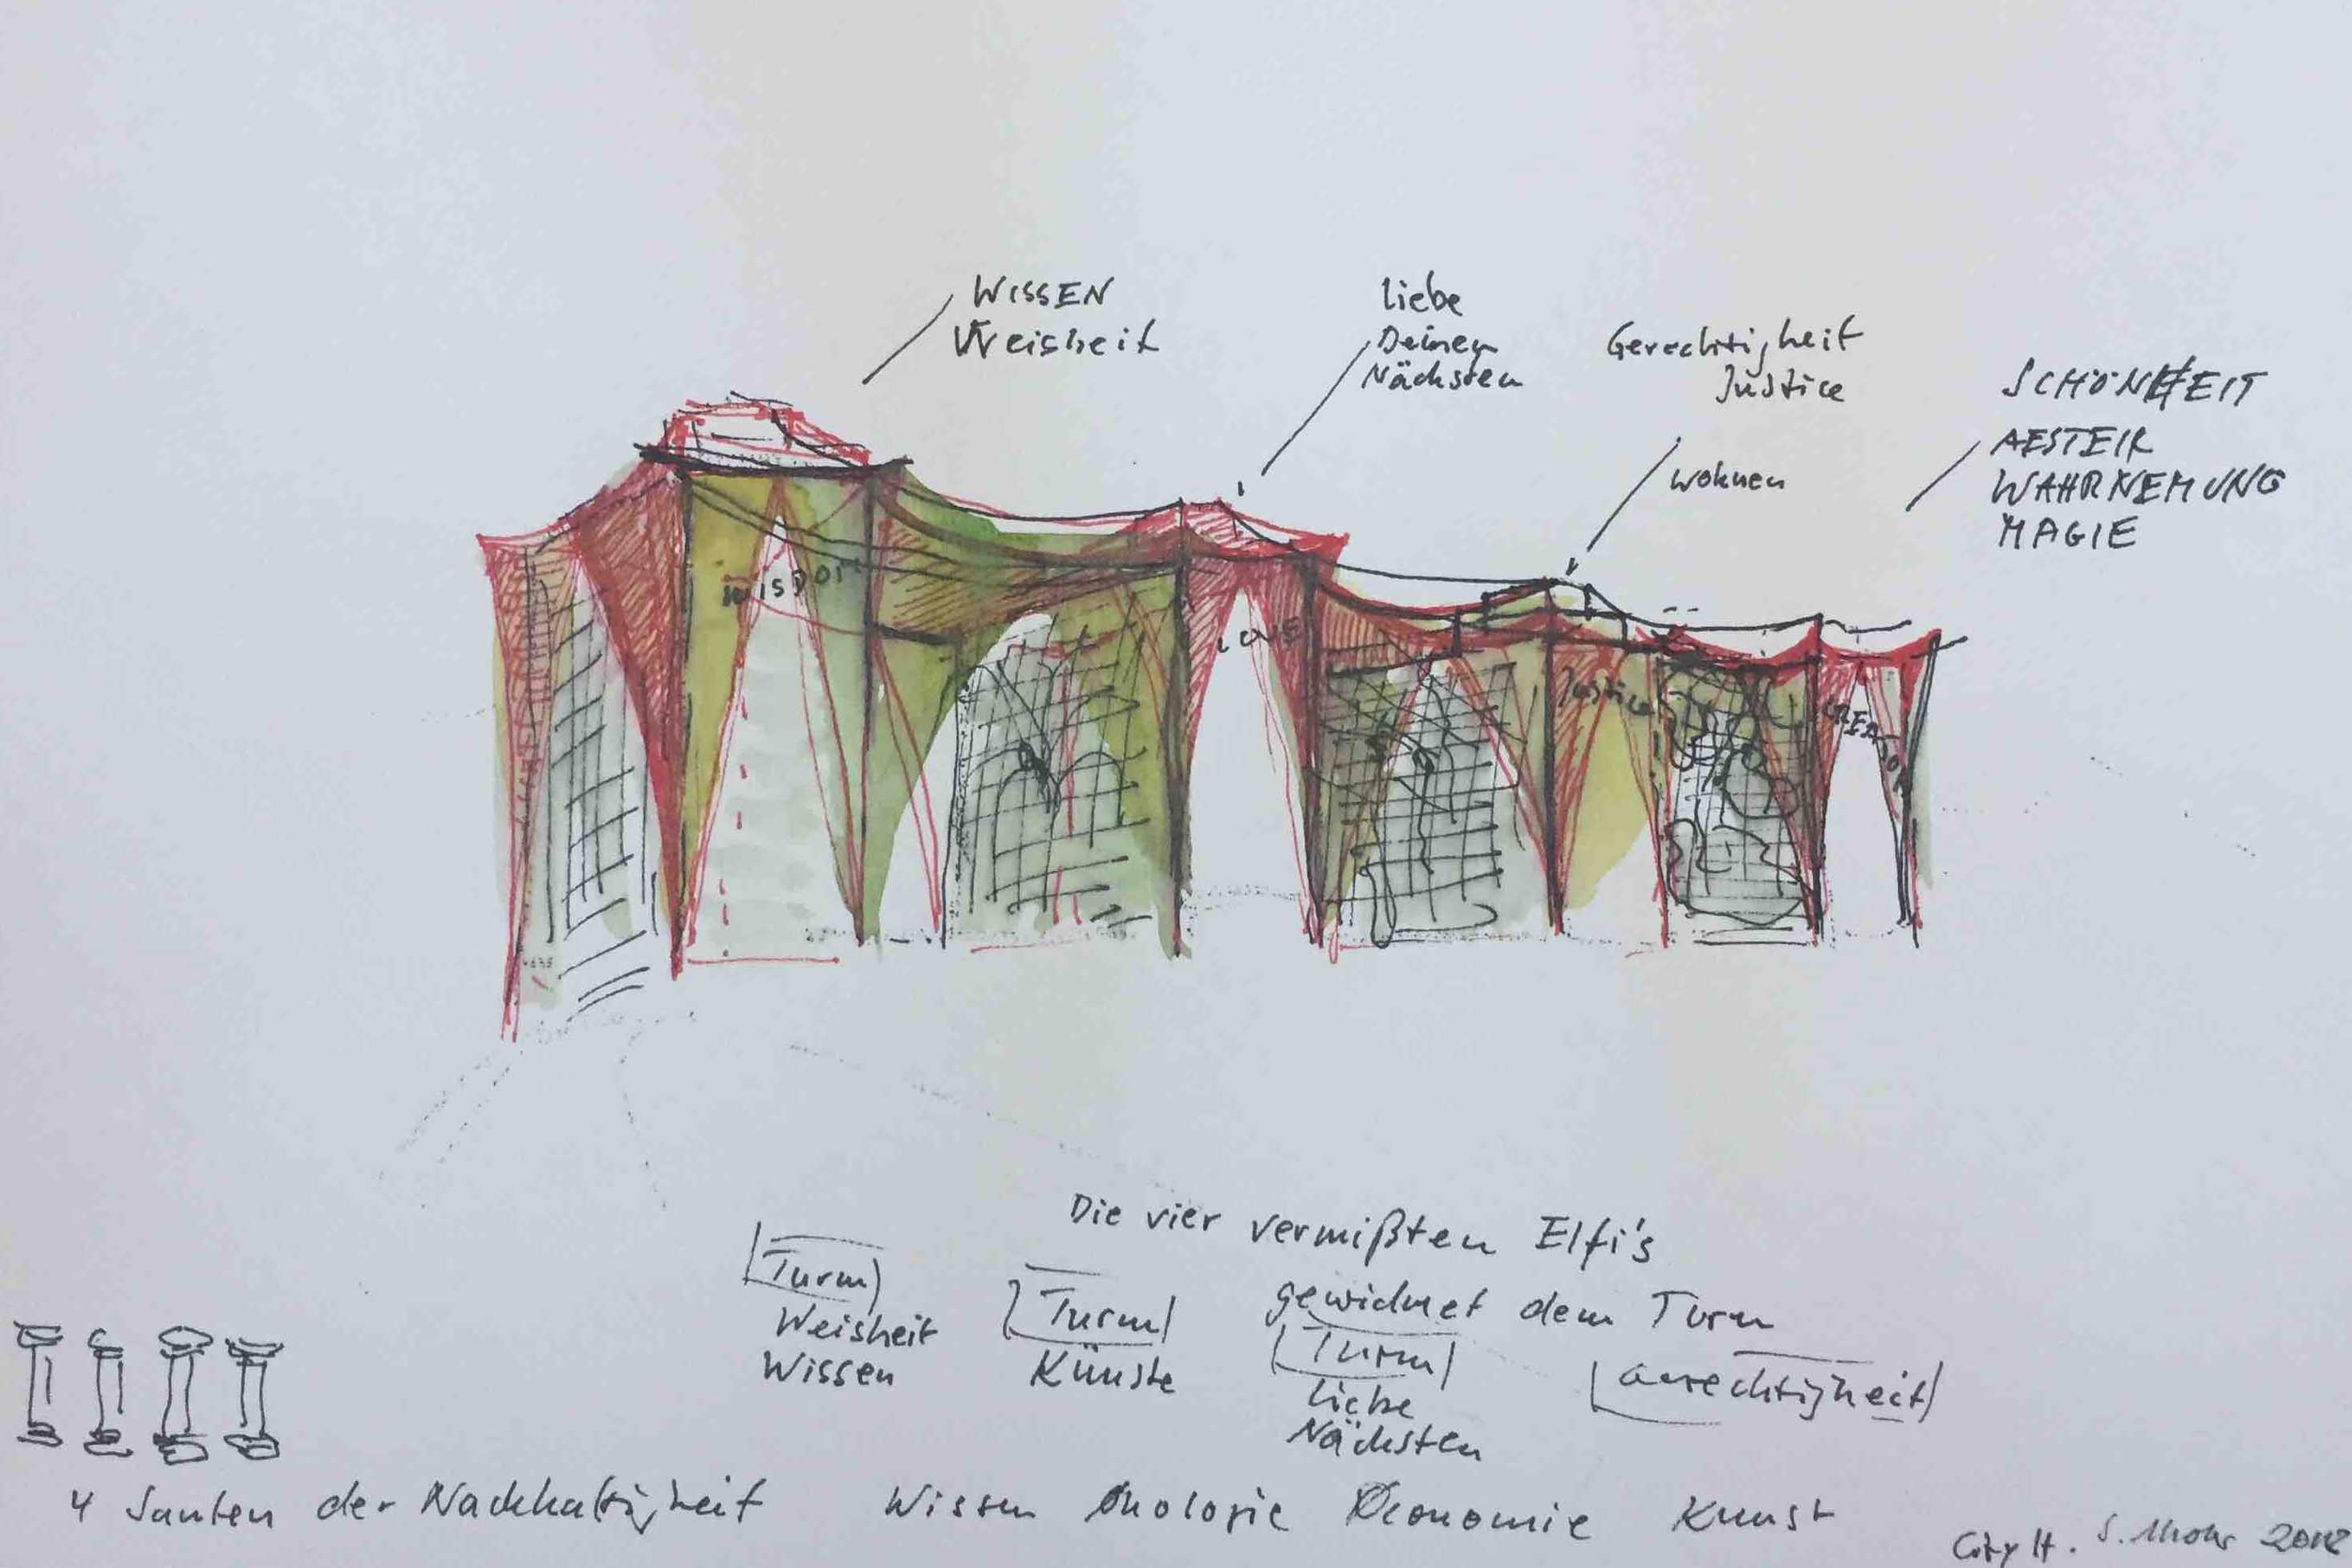 WISSEN
Weisheit
liebe
Deinen
Nächsten
Gerechtigkeit
Justice
wohnen
SCHÖNHEIT
AESTEIK
WAHRNEMUNG
MAGIE
WISDOM
LOVE
Justice
Die vier vermißten Elfi's
gewidmet dem Turm
Turm
Weisheit
Wissen
Turm
Künste
Turm
liebe
Nächsten
Gerechtigkeit
4 Saulen der Nachhaltigkeit Wissen Ökologie Oeconomie Kunst
City H. S. Mohr